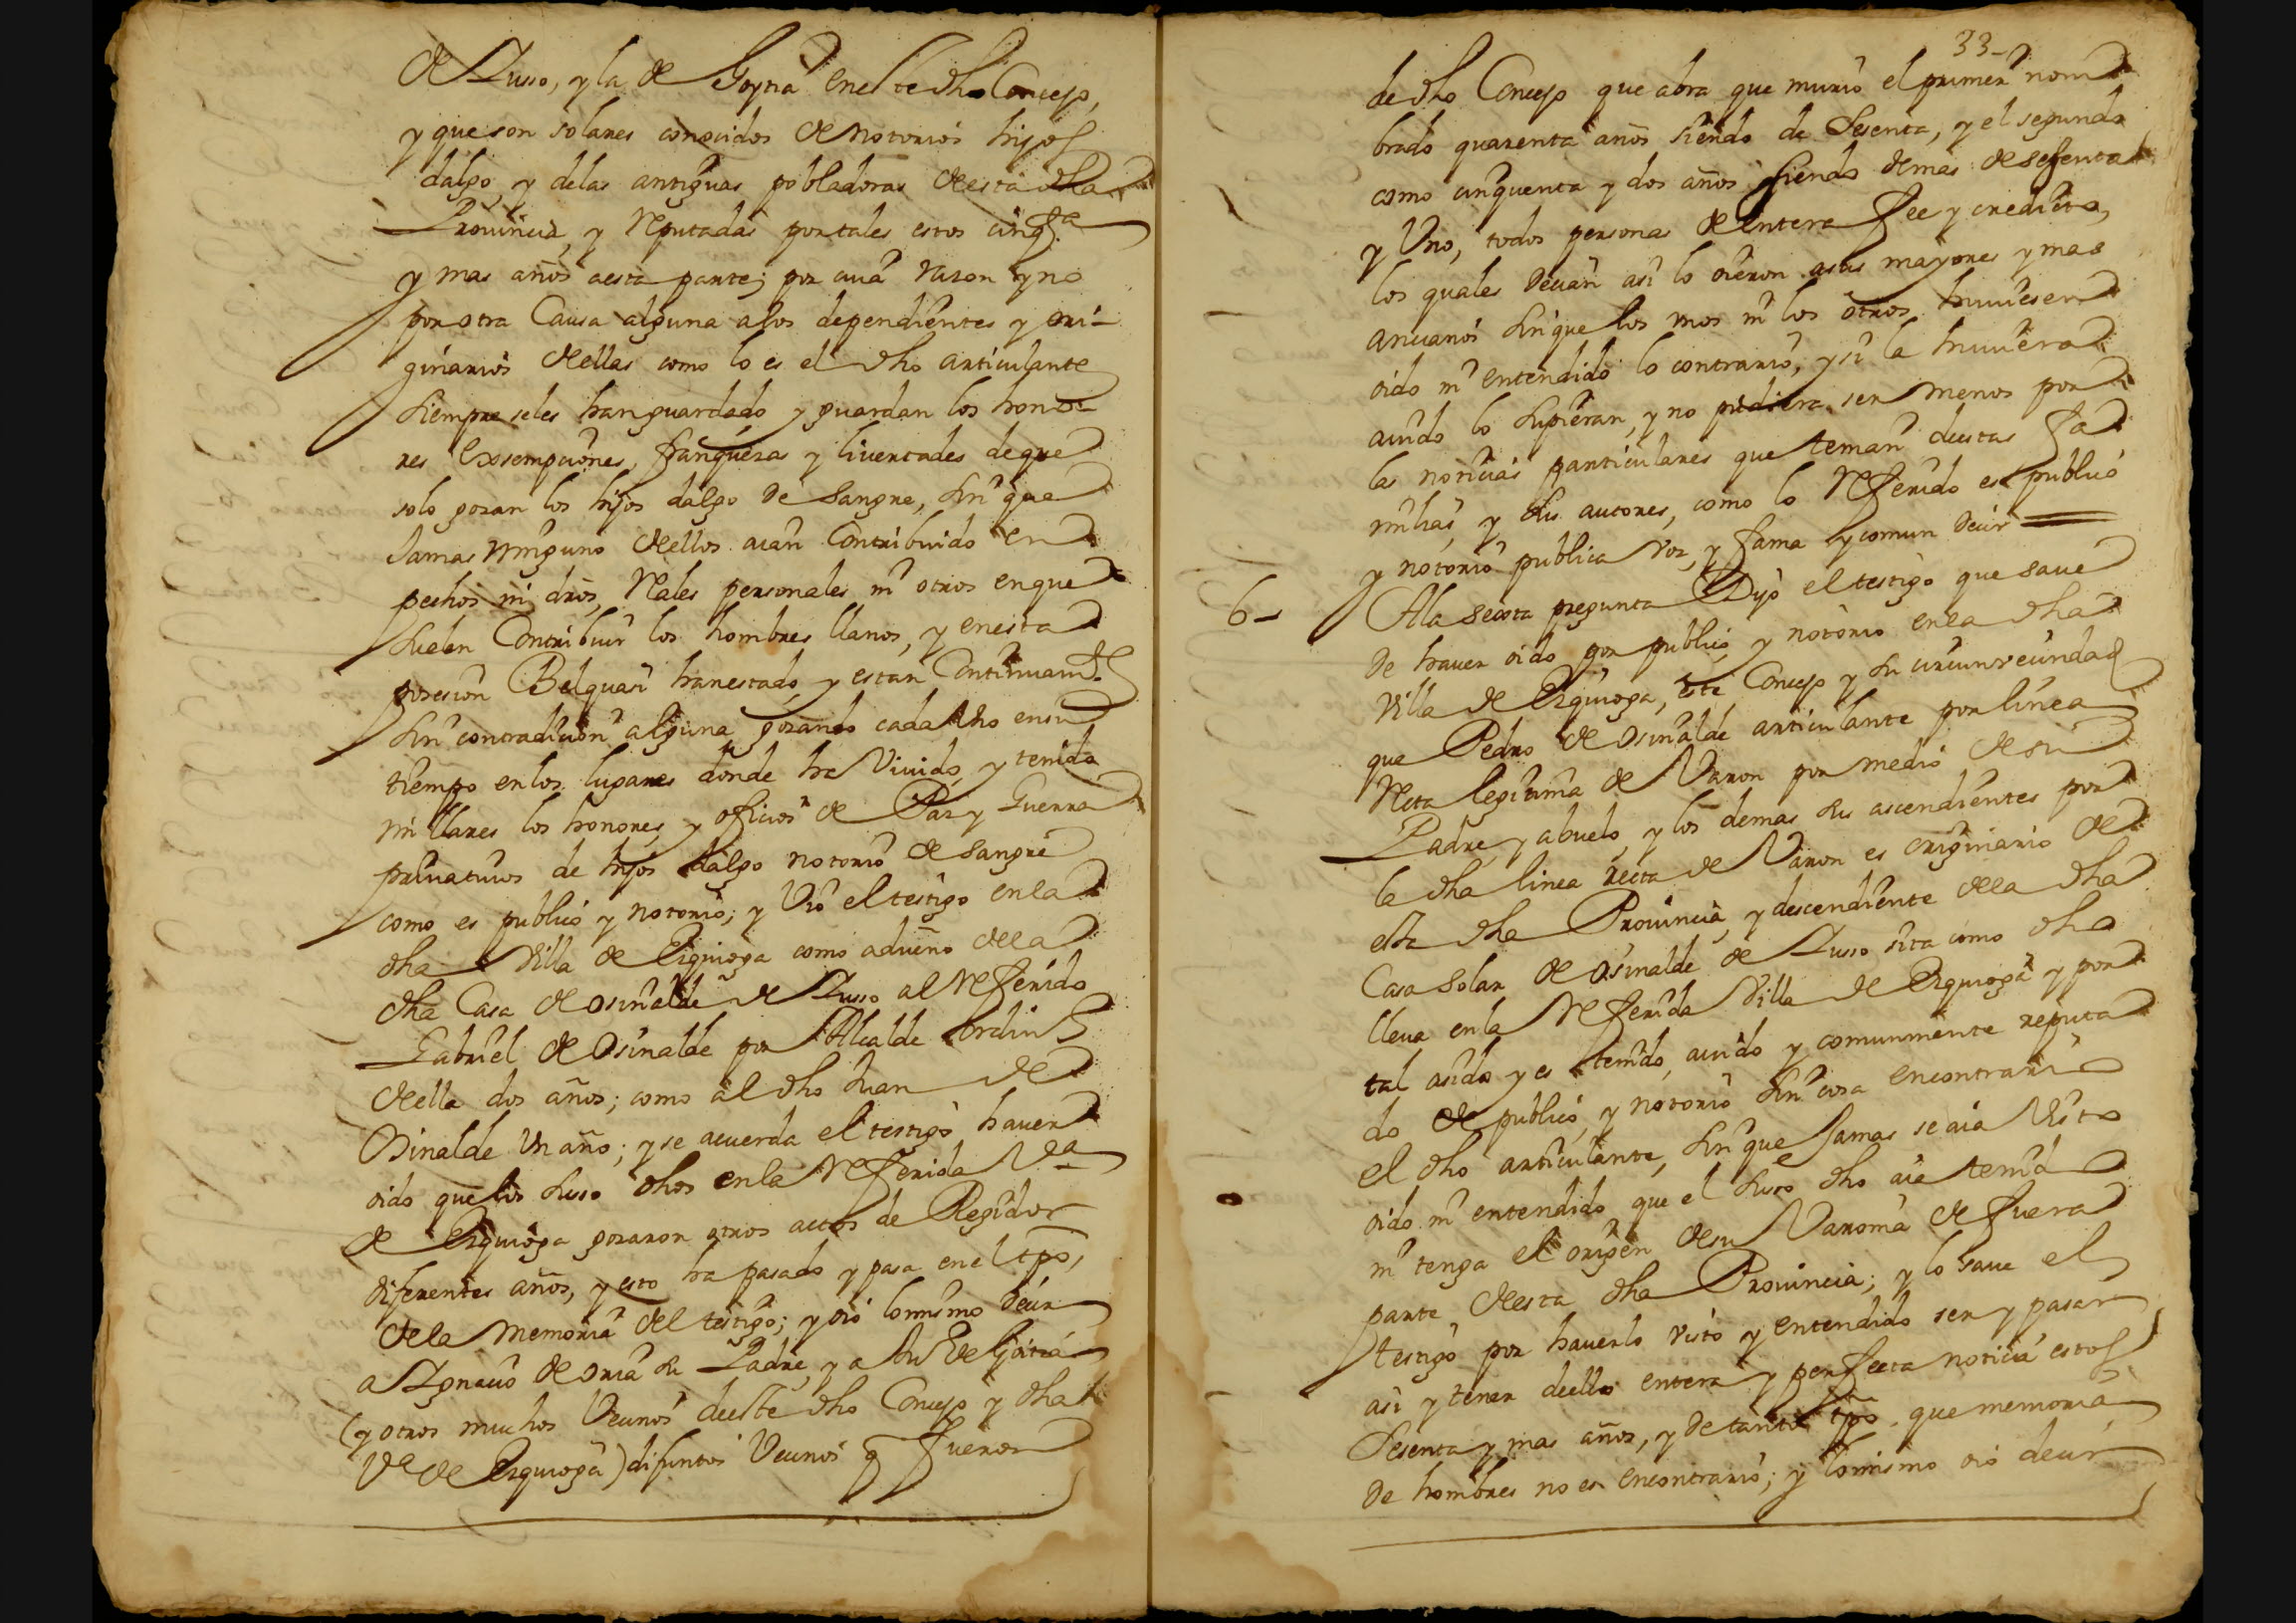 de Suso, y la de Goyna en este dho Concejo,
y que son solares conocidos de notorios hijos
dalgo, y de las antiguas pobladoras de esta dha
Prouincia, y Reputadas por tales estos cinq.ta
y mas años aesta parte; por cuia razon y no
por otra Causa alguna a los dependientes y ori-
ginarios de ellas como lo es el dho articulante
siempre seles han guardado y guardan los hono-
res exsempciones, franquezas y liuertades de que
solo gozan los hijos dalgo de sangre, sin que
Jamas ninguno de ellos aian Contribuido en
pechos ni dros, Reales personales ni otros en que
suelen Contribuir los hombres llanos, y en esta
posesion Belquasi han estado, y estan Continuam.te
sin contradicion alguna gozando cada Uno en su
tiempo en los lugares donde ha Viuido, y tenido
millares los honores, y oficios de Paz y Guerra
priuatiuos de hijos dalgo notorio de sangre
como es publico y notorio; y Vio el testigo en la
dha Villa de Ezquioga como a dueño de la
dha Casa de Osinalde de Suso al Referido
Gabriel de Osinalde por Alcalde ordin.o
de ella dos años; como al dho Juan de
Osinalde Un año; y se acuerda el testigo hauer
oido que los suso dhos en la Referida V.a
de Ezquioga gozaron otros actos de Regidor
diferentes años, y esto ha pasado y pasa en el tpo,
de la memoria del testigo; y oió lo mismo decir
a Ygnacio de Oria su Padre, y a
(y otros muchos Vecinos de este dho Concejo y dha
V.a de Ezquioga) difuntos Vecinos q fueron
33-
de dho Concejo que abra que murió el primer nom
brado quarenta años siendo de Sesenta, y el segundo
como cinquenta y dos años siendo de mas de sesenta
y Uno, todos personas de entera fee y credito,
los quales decian asi lo oieron a sus mayores y mas
ancianos sin que los unos ni los otros huuiesen
oido ni entendido lo contrario, y si la huuiera
auido lo supieran, y no pudiera ser menos por
las noticias particulares que tenian de estas fa
milias, y sus autores, como lo Referido es publico
y notorio publica voz, y fama y comun decir
6- A la sexta pregunta Dijo el testigo que saue
de hauer oido por publico, y notorio en la dha
Villa de Ezquioga, este Concejo y su circunvecindad
que Pedro de Osinalde articulante por linea
Recta legitima de Varon por medio de su
Padre, y abuelo, y los demas sus ascendientes por
la dha linea recta de Varon es originario de
esta dha Prouincia, y descendiente de la dha
Casa Solar de Osinalde de Suso sita como dho
lleua en la Referida Villa de Ezquioga y por
tal asido y es tenido, auido y comunmente reputa
do de publico, y notorio sin cosa en contrario
el dho articulante, sin que Jamas se aia Visto
oido ni entendido que el suso dho aie tenido
ni tenga el origen de su Varonia de fuera
parte de esta dha Prouincia; y lo saue el
testigo por hauerlo visto y entendido ser y pasar
asi y tener de ello entera y perfecta noticia estos
Sesenta y mas años, y de tanto tpo. que memoria
de hombres no es en contrario; y lo mismo oió decir